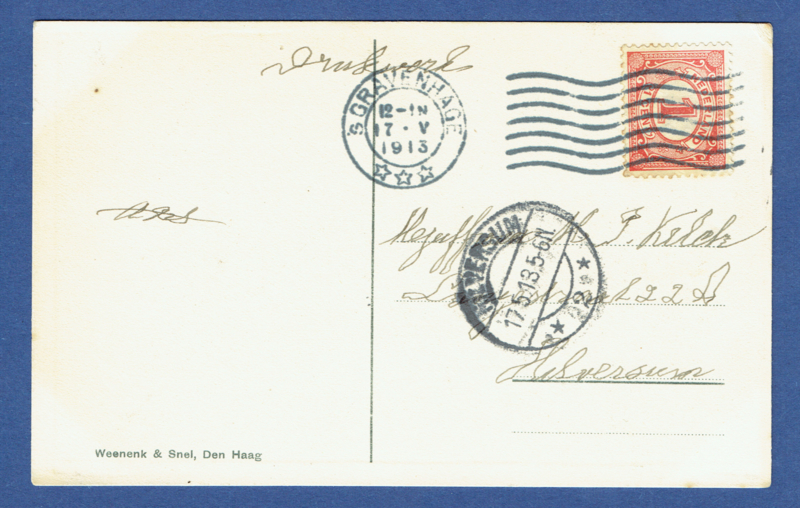 Drukwerk
'S GRAVENHAGE
12-1N
17·V
1913
NEDERLAND
1
HILVERSUM
17.5.13.5-6N
2
Mejuffrouw
22
Hilversum
Weenenk & Snel, Den Haag